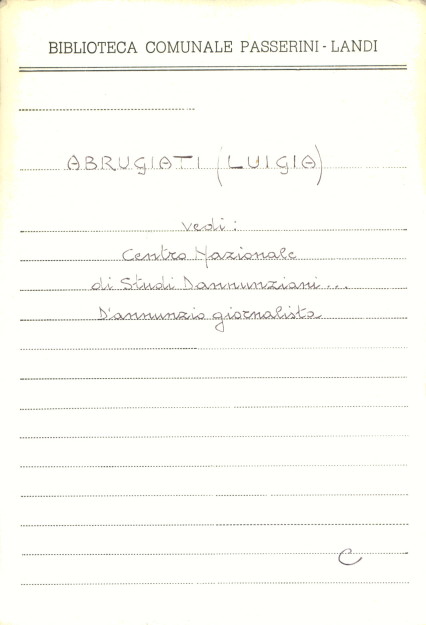 BIBLIOTECA COMUNALE PASSERINI - LANDI
ABRUGIATI (LUIGIA)
vedi:
Centro Nazionale
di Studi Dannunziani...
D'annunzio giornalista
C